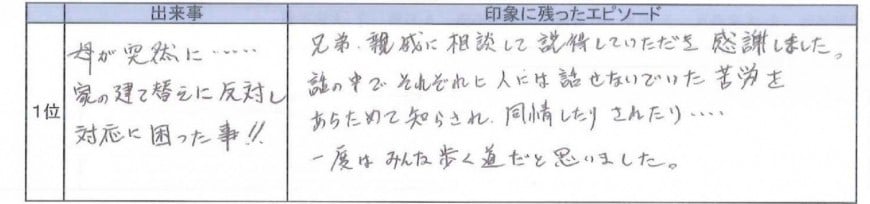 出来事
印象に残ったエピソード
1位
母が突然に……
家の建て替えに反対し
対応に困った事!!
兄弟、親戚に相談して説得していただき感謝しました。
話の中でそれぞれに人には話せないでいた苦労を
あらためて知らされ、同情したりされたり‥‥
一度はみんな歩く道だと思いました。